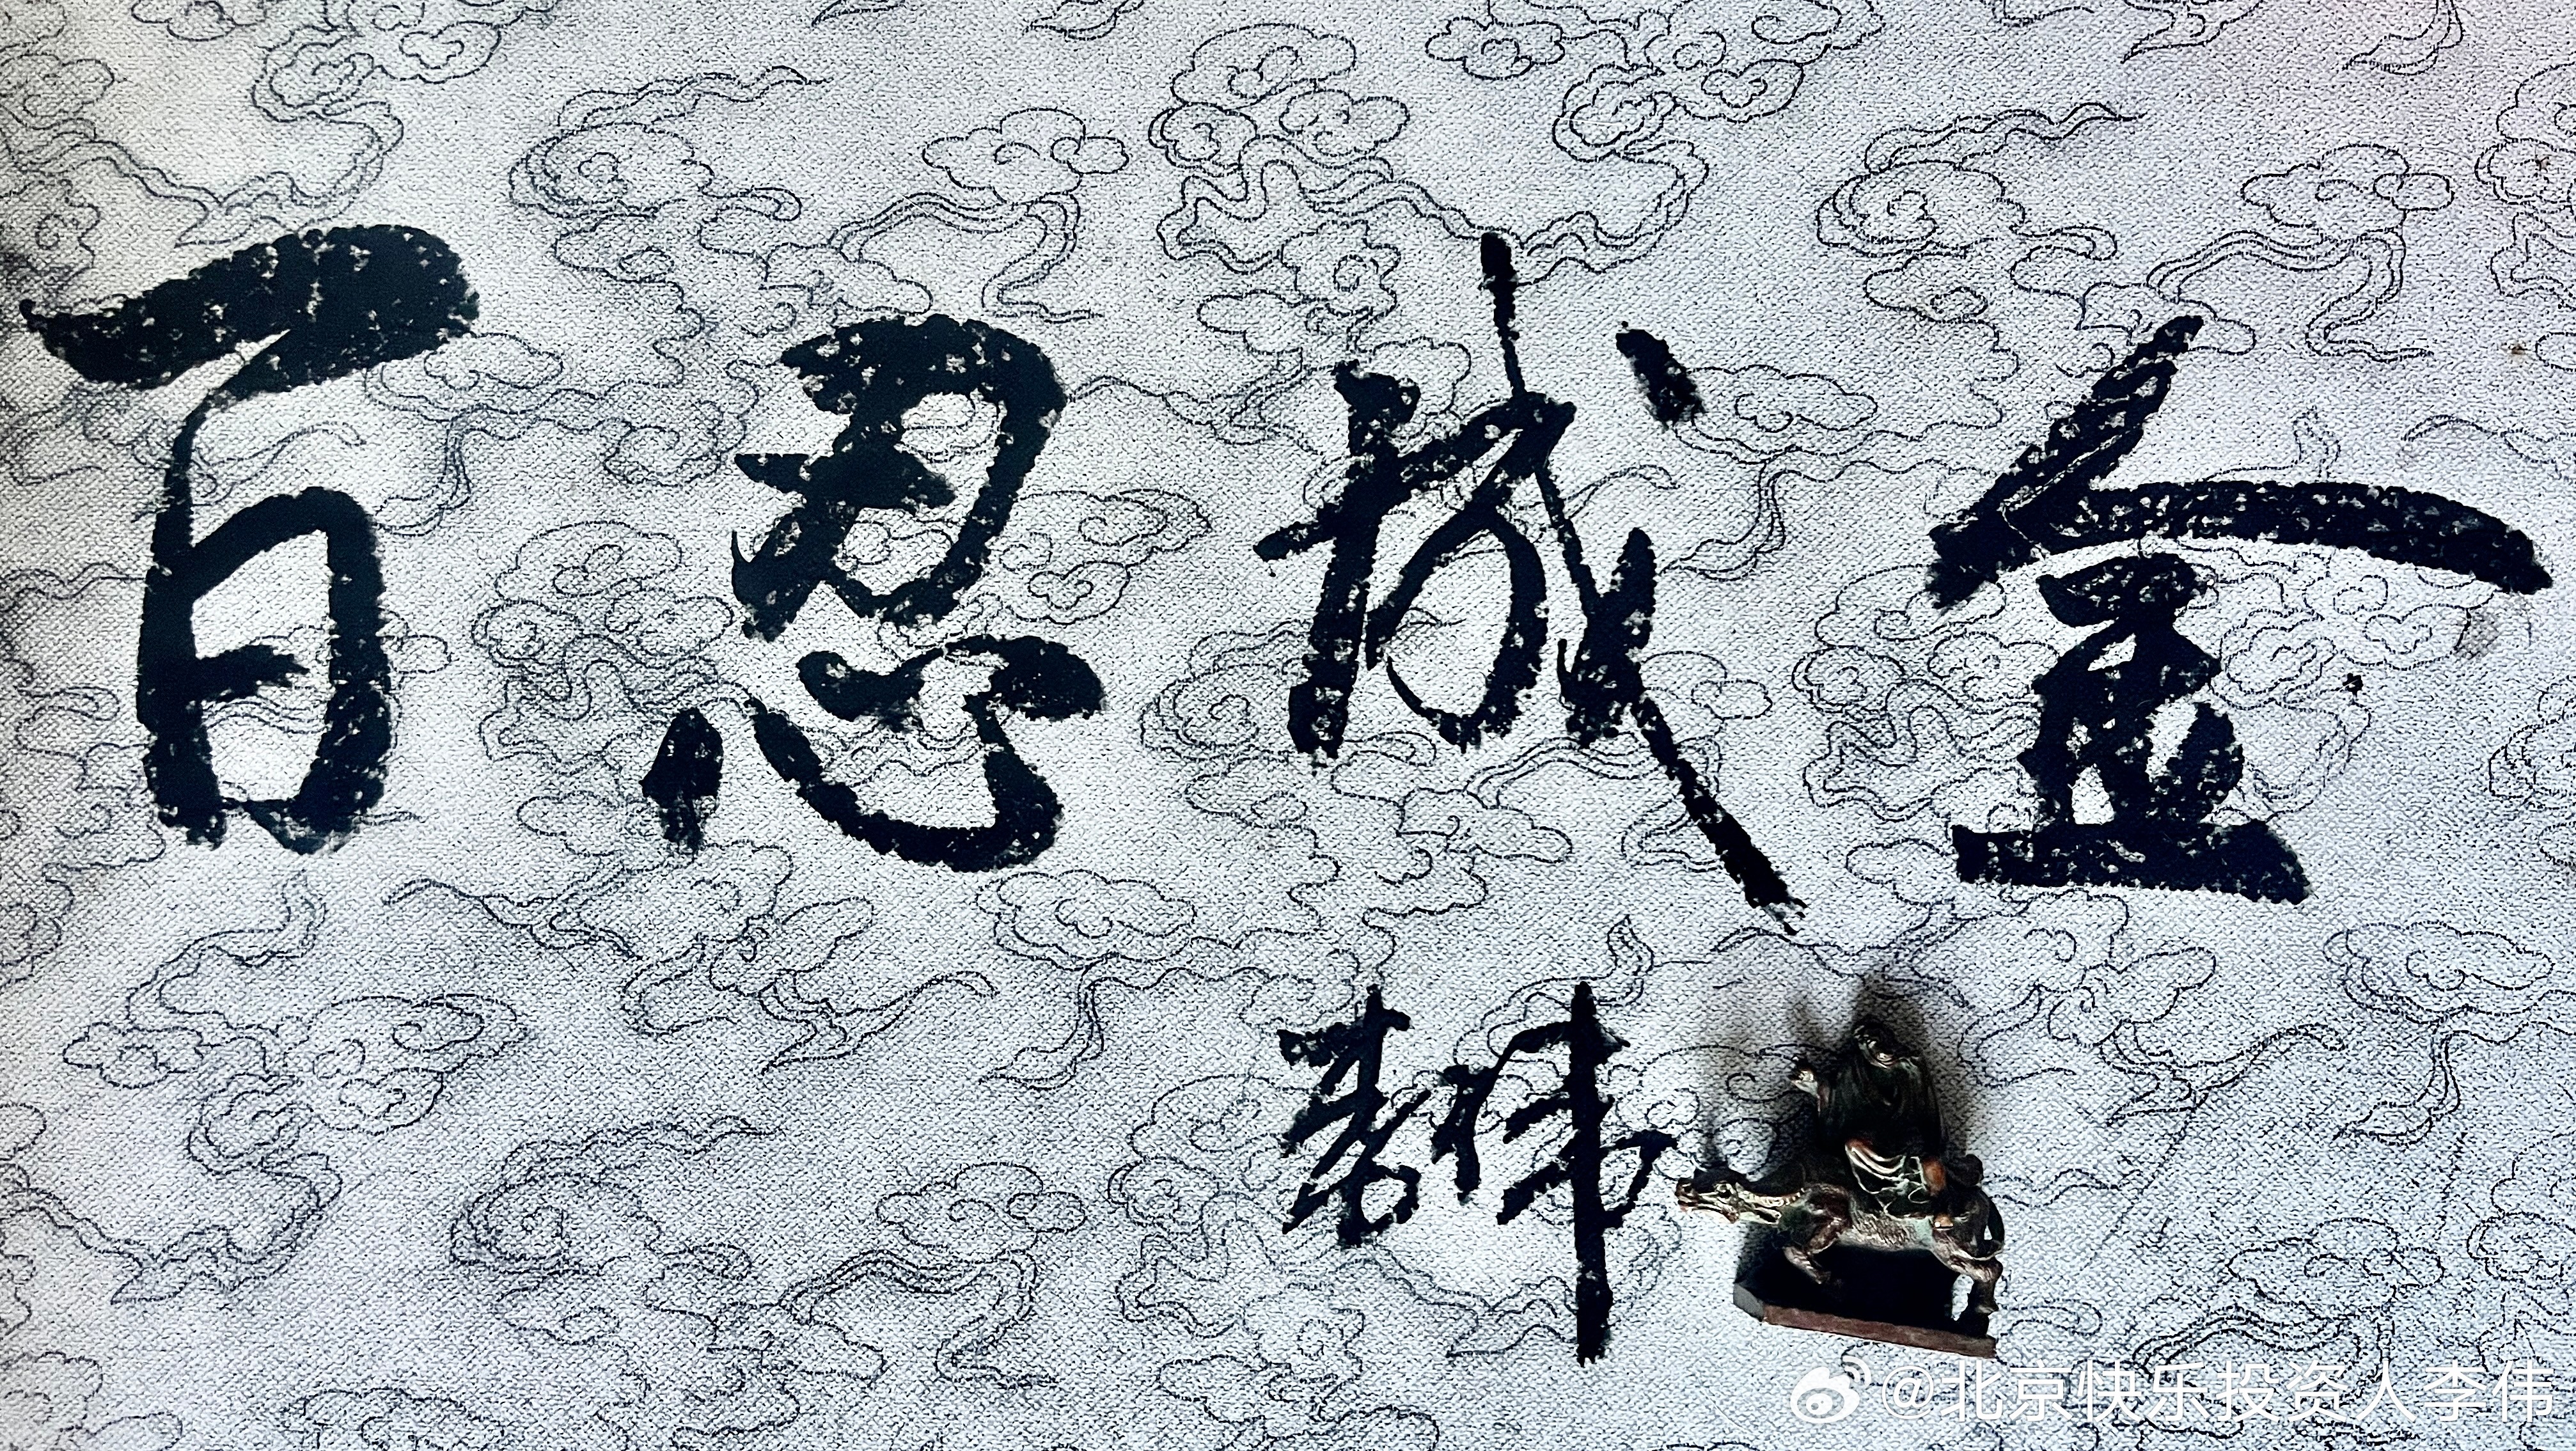 百忍成金
李伟
@北京快乐投资人李伟